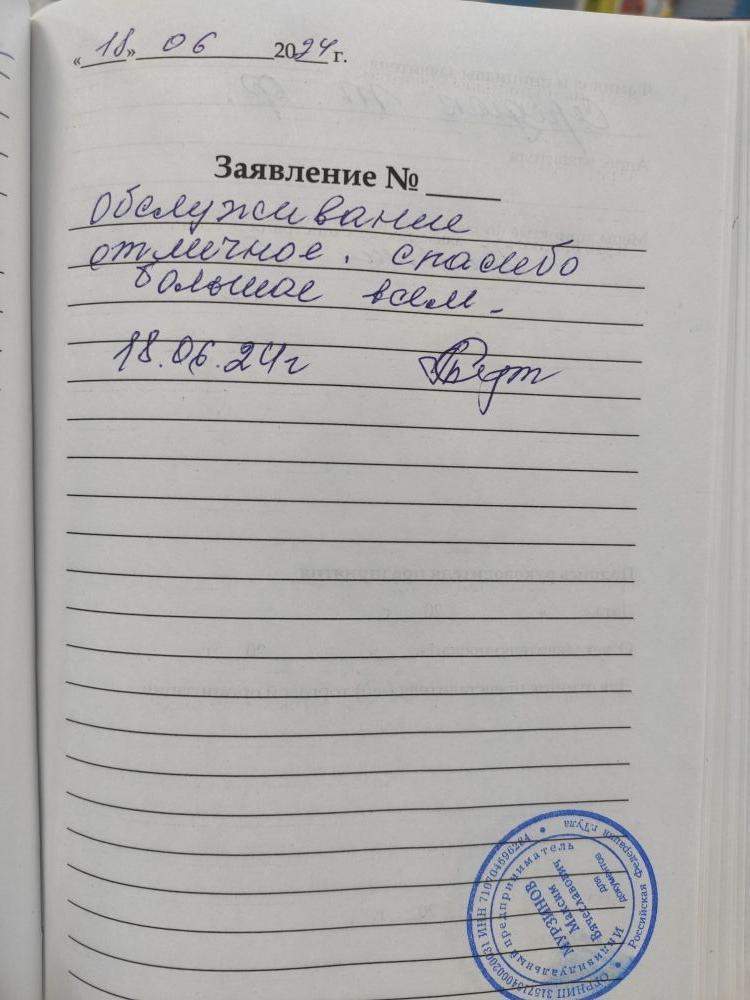 «18» 06 2024 г.
Заявление № ____
Обслуживание
отличное. спасибо
большое всем.
18.06.24г
Российская Федерация г.Тула
Индивидуальный предприниматель
МУРЗИНОВ
Максим
Вячеславович
для
документов
ИНН 710704696284